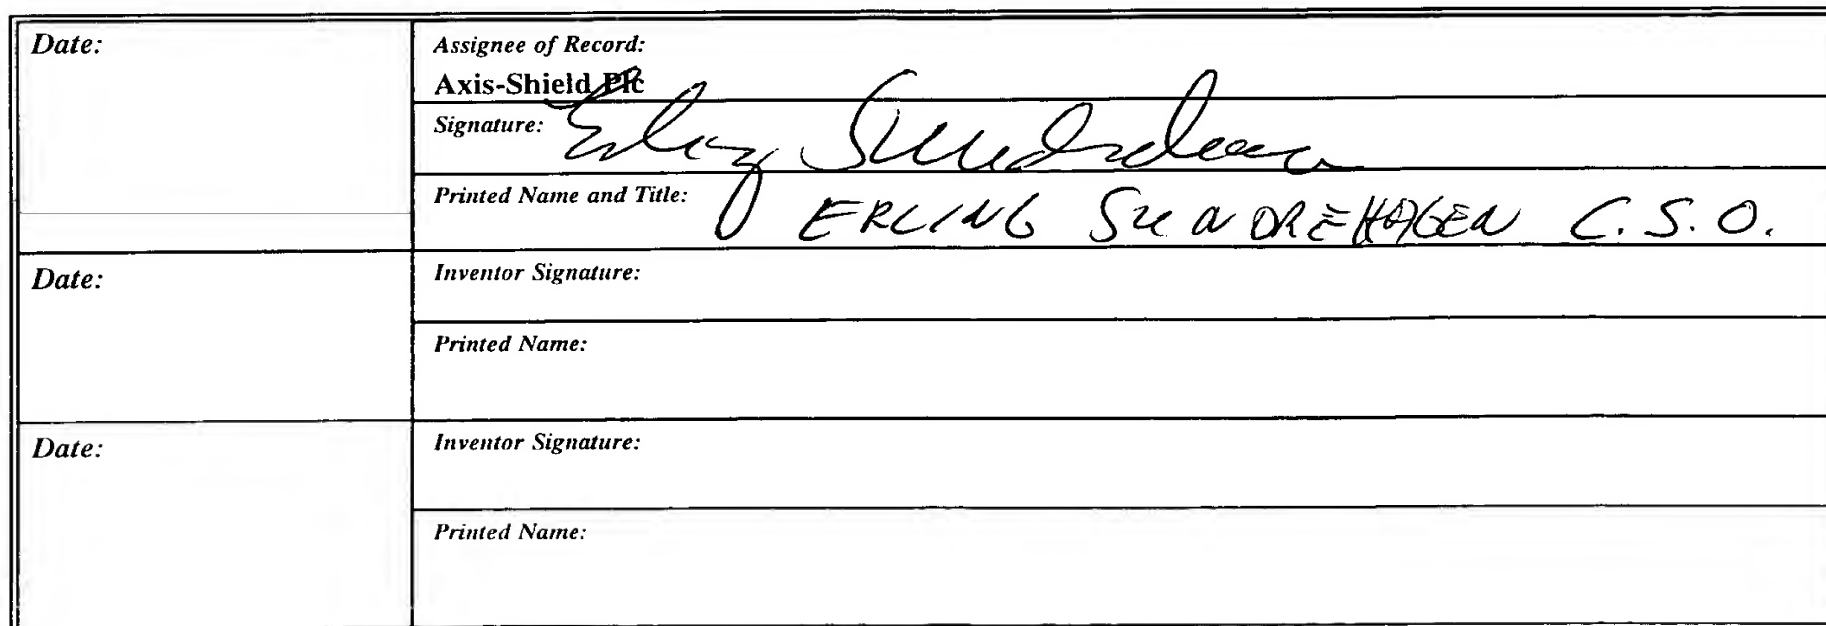 Date:
Assignee of Record:
Axis-Shield Plc
Signature:
Printed Name and Title: ERLING SUNDREHAGEN C.S.O.
Date:
Inventor Signature:
Printed Name:
Date:
Inventor Signature:
Printed Name: